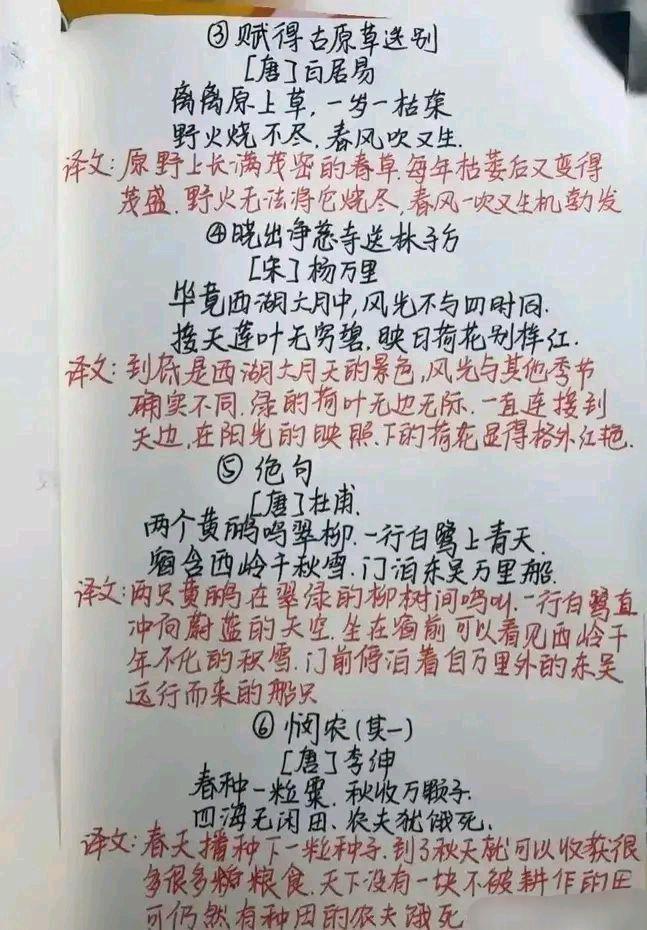 ③赋得古原草送别
[唐]白居易
离离原上草，一岁一枯荣
野火烧不尽，春风吹又生.
译文：原野上长满茂密的春草.每年枯萎后又变得
茂盛.野火无法将它烧尽,春风一吹又生机勃发
④晓出净慈寺送林子方
[宋]杨万里
毕竟西湖六月中,风光不与四时同.
接天莲叶无穷碧,映日荷花别样红.
译文：到底是西湖六月天的景色,风光与其他季节
确实不同.绿的荷叶无边无际.一直连接到
天边,在阳光的映照下的荷花显得格外红艳.
⑤绝句
[唐]杜甫.
两个黄鹂鸣翠柳.一行白鹭上青天.
窗含西岭千秋雪.门泊东吴万里船.
译文：两只黄鹂在翠绿的柳树间鸣叫.一行白鹭直
冲向蔚蓝的天空.坐在窗前可以看见西岭千
年不化的积雪.门前停泊着自万里外的东吴
远行而来的船只
⑥悯农(其一)
[唐]李绅
春种一粒粟.秋收万颗子.
四海无闲田、农夫犹饿死.
译文：春天播种下一粒种子.到了秋天就可以收获很
多很多粮食.天下没有一块不被耕作的田
可仍然有种田的农夫饿死